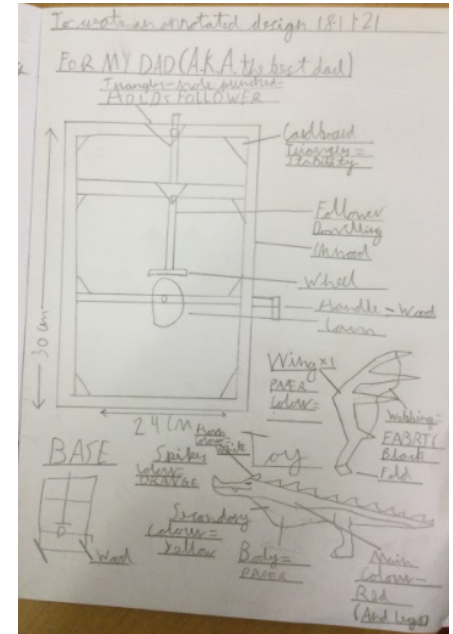 To create an annotated design 18.1.21
FOR MY DAD (A.K.A. the best dad)
Triangles-hole punched
HOLDS FOLLOWER
Cardboard
Triangles =
Stability
Follower
Dowelling
Wheel
Handle - Wood
Cam
30 cm
24 CM
BASE
Wood
Toy
Wing x1
PAPER
Colour =
Webbing =
FABRIC
Black
Fold
White
Spikes
Colour =
ORANGE
Secondary
Colour =
Yellow
Body =
PAPER
Main
Colour =
Red
(And legs)